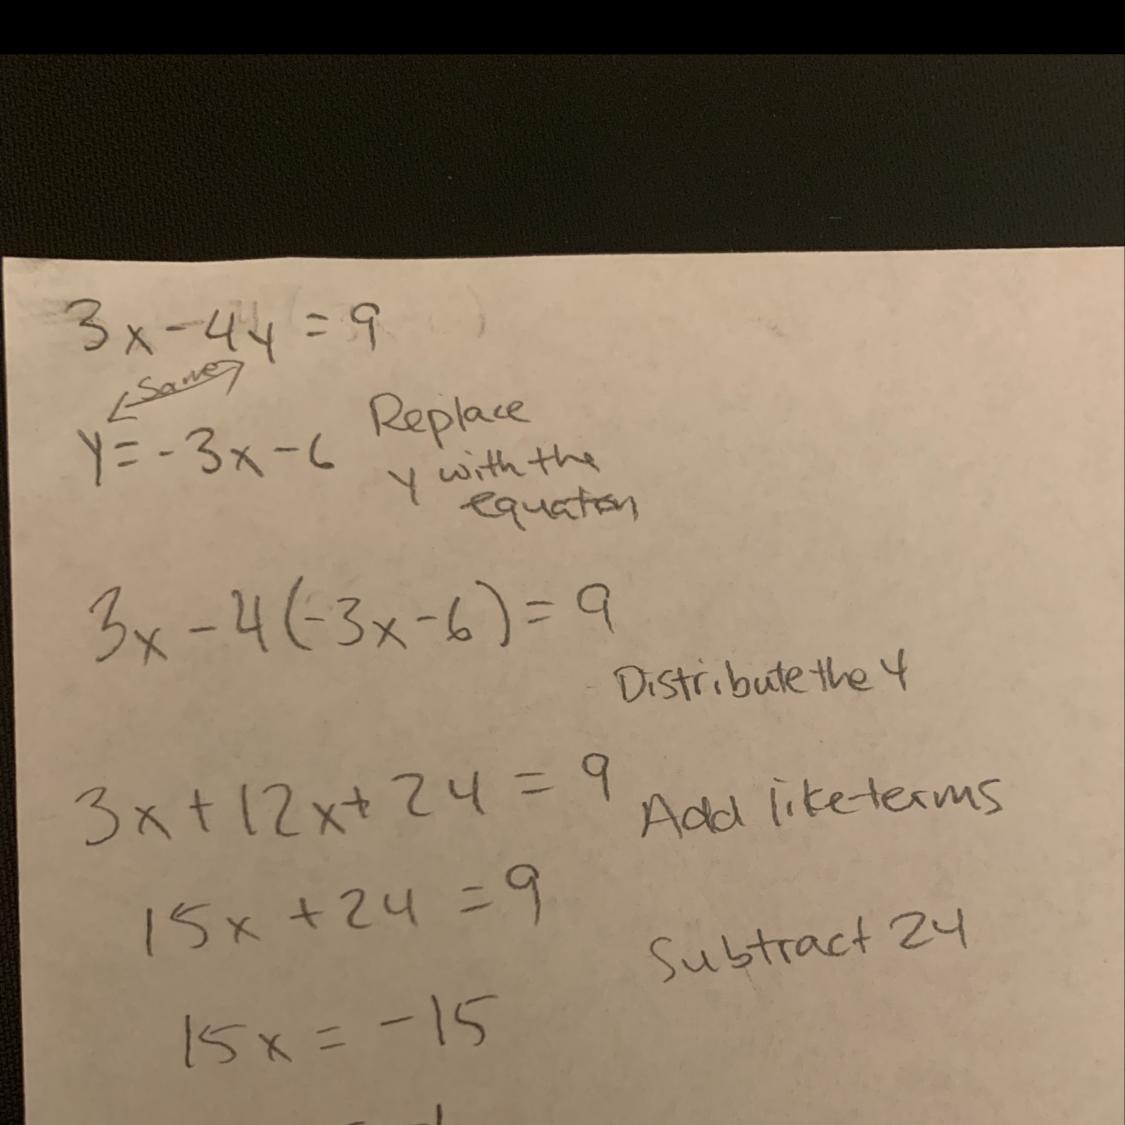 3x-4y=9
Same
y=-3x-6
Replace
y with the
equaton
3x-4(-3x-6)=9
Distribute the 4
3x+12x+24=9
Add like terms
15x+24=9
Subtract 24
15x=-15